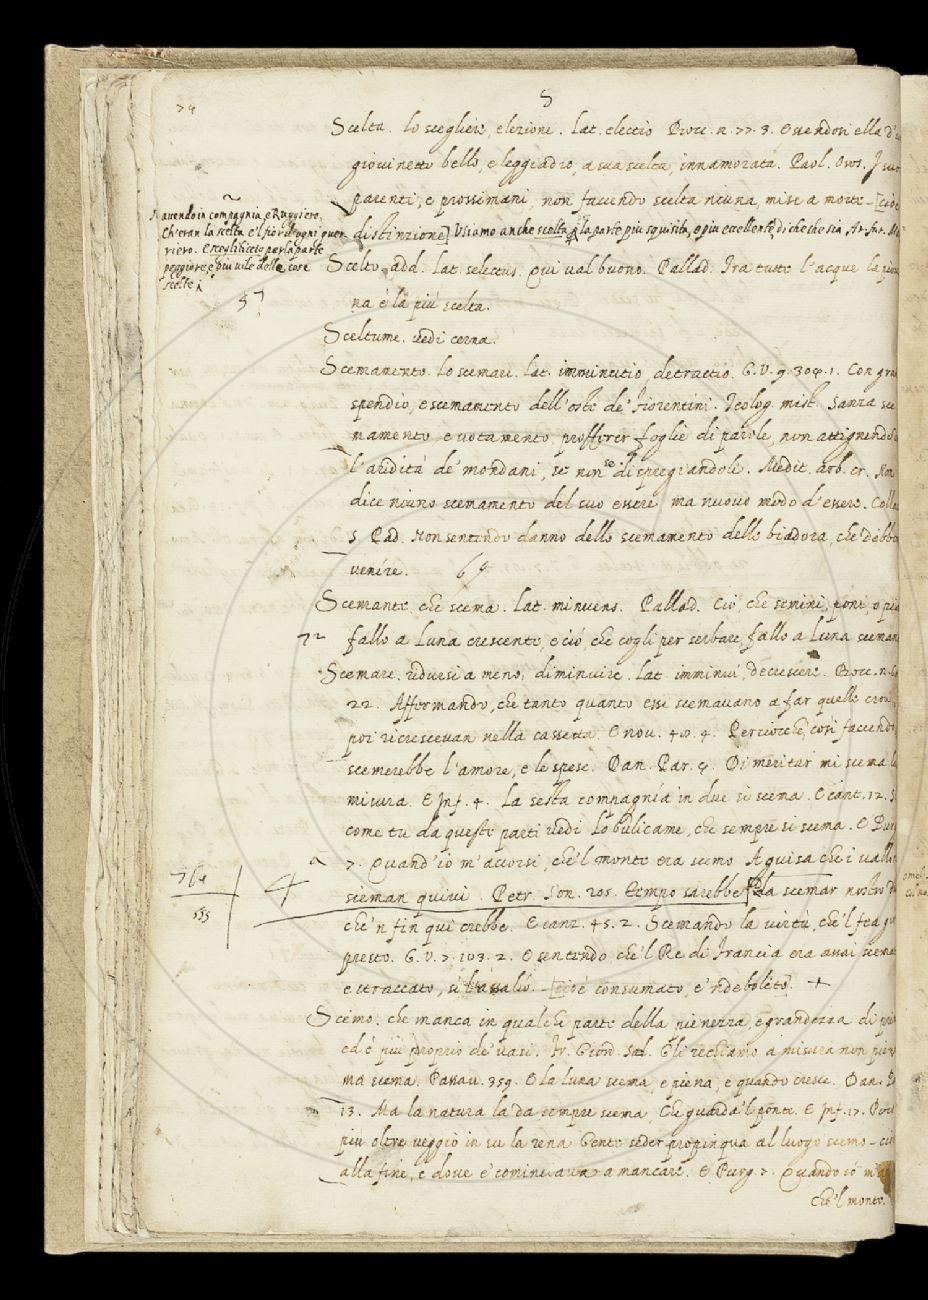 74
S
Scelta. lo scegliere, elezione. Lat. electio Bocc. n. 77. 3. Essendosi ella d'
giovinetto bello, e leggiadro, a sua scelta, innamorata. Paol. Oros. I suo
parenti, e prossimani, non facendo scelta niuna, mise a morte - [cioè
avendo in compagnia, e Ruggiero,
Ch'eran la scelta e'l fior d'ogni guer
riero.
peggiore, e più vile delle cose
scelte.
distinzione] Usiamo anche scelta la parte più squisita, e più eccellente, di che che sia Ar. Fur.
Scelto, add. lat. selectus. Qui val buono. Pallad. Tra tutte l'acque la piova
na è la più scelta.
57
Sceltume. vedi cerna.
Scemamento. lo scemare. Lat. imminutio detractio. G.V. 9. 304. 1. Con gra
spendio, e scemamento dell'oste de' Fiorentini. Teolog. mist. Sanza sce
mamento e votamento, profferer foglie di parole, non attignendo
l'avidità de' mondani, se non se dispregiandoli. Medit. arb. cr. Non
dice niuno scemamento del suo essere ma nuovo modo d'essere. Colla
5 Pad. Non sentendo danno dello scemamento della biadora, che debbo
venire. 64
Scemante. che scema. Lat. minuens. Pallad. Ciò, che semini, poni, o pia
72 fallo a Luna crescente, e ciò, che cogli per serbare, fallo a Luna sceman
Scemare. ridursi a meno, diminuire. Lat. imminui, decrescere. Bocc. n.
22. Affermando, che tanto quanto esse scemavano a far quelle croci,
poi ricrescevan nella cassetta. E nov. 40. 4. Perciocché, così facendo,
scemerebbe l'amore, e le spese. Dan. Par. 4. Di meritar mi scema la
misura. E Inf. 4. La sesta compagnia in due si scema. E cant. 12. Sì
come tu da questa parte vedi Lo bulicame, che sempre si scema. E Purg
7. Quand'io m'accorsi, che'l monte era scemo A guisa che i vallon
764
555
4
sceman quivi. Petr. Son. 205. Tempo sarebbe da scemar nostro
che'n fin qui crebbe. E canz. 45. 2. Scemando la virtù, che'l fea gir
presto. G.V. 7. 103. 2. E sentendo che'l Re di Francia era assai scema
e straccato, sì l'assalì. - [cioè consumato, e'ndebolito]. +
Scemo. che manca in qualche parte della pienezza, e grandezza di pri
ed è più proprio de' vasi. Fr. Giord. Sal. Gli rechiamo a misura non piena
ma scema. Passav. 359. E la luna scema, e piena, e quando cresce. Dan. Pa
13. Ma la natura la da sempre scema, Che guarda'l ponte. E Inf. 17. Poco
più oltre veggio in su la rena Gente seder propinqua al luogo scemo - cio
alla fine, e dove e' cominciava a mancare. E Purg 7. Quando io m'
Che'l monte.